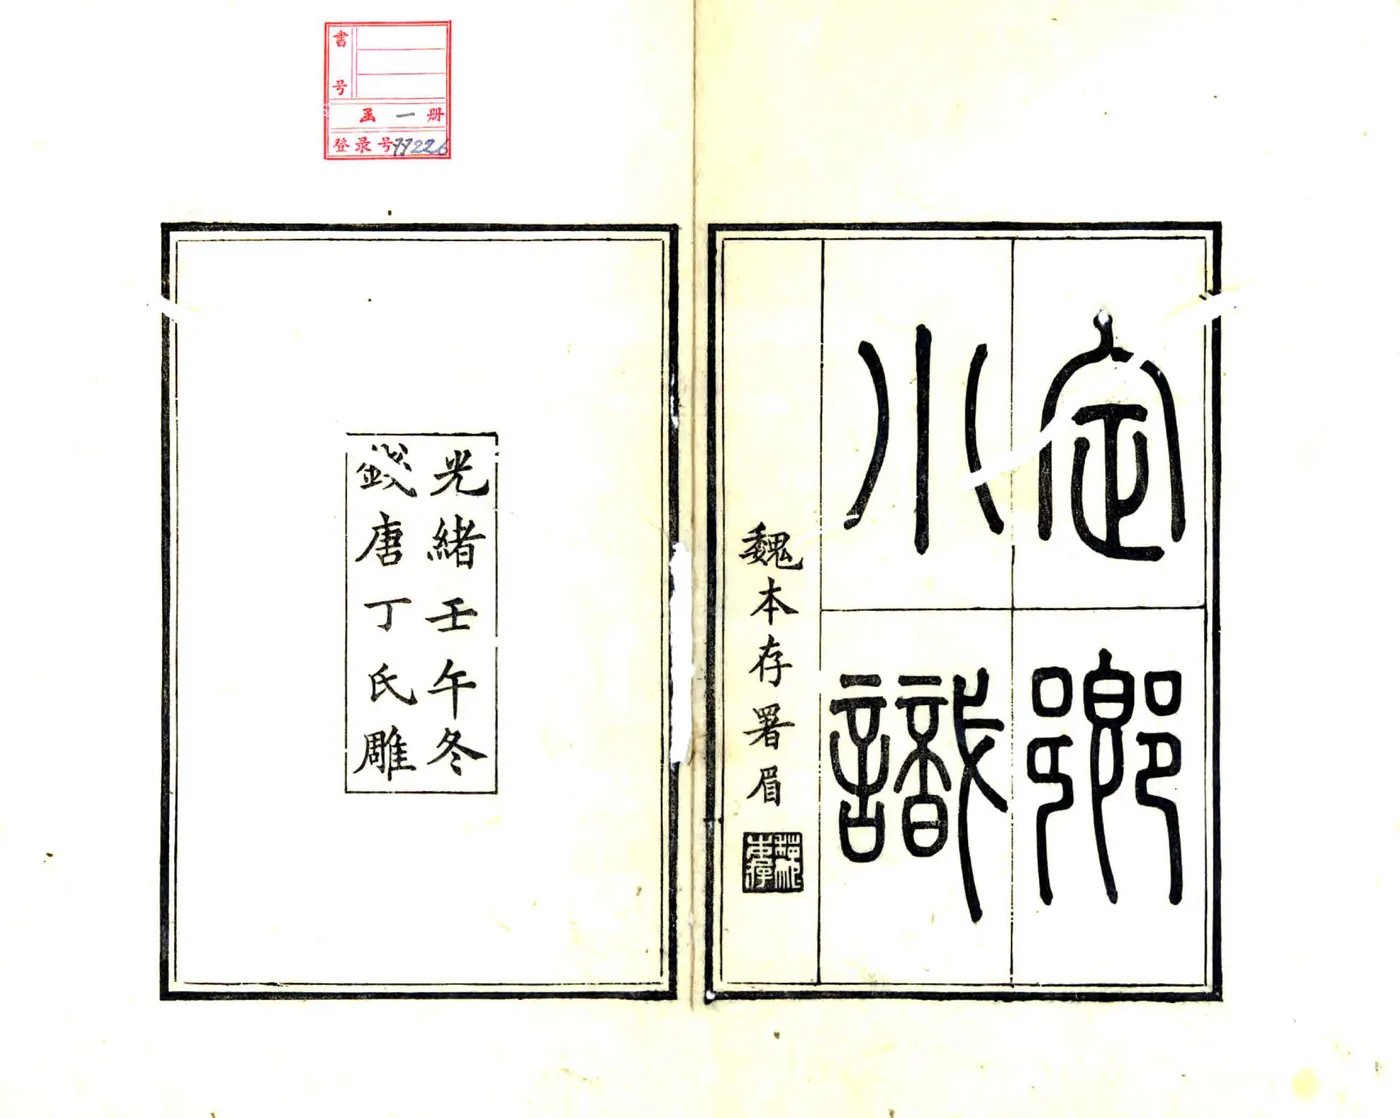 定鄉
小識
魏本存署眉
光緒壬午冬
錢唐丁氏雕
書号
函一册
登录号77226